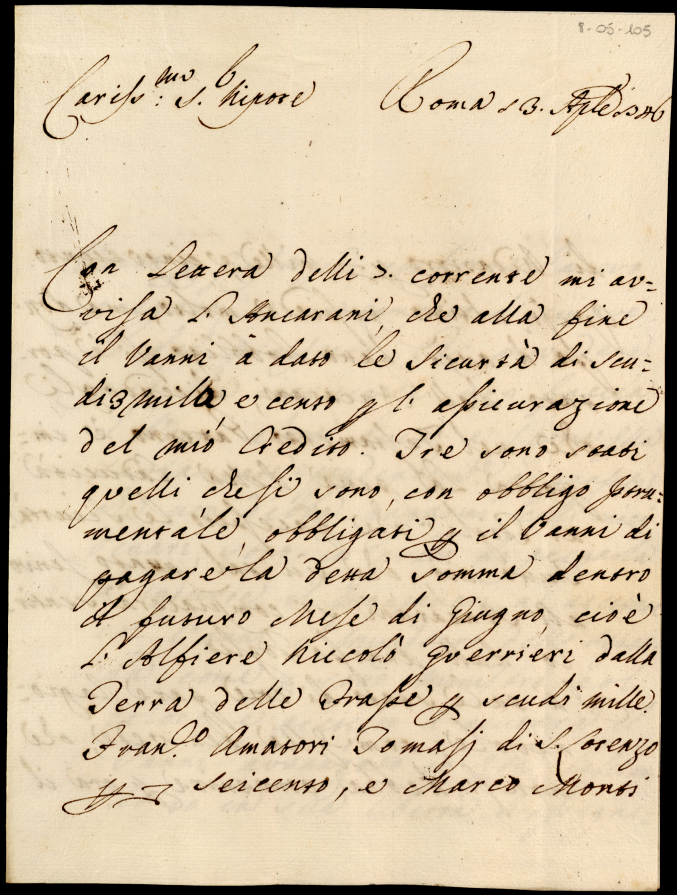 8-05-105
Cariss.mo S.r Nipote Roma 13. Aple 1746
Con Lettera delli 5. corrente mi av=
visa l'Ancarani, che alla fine
il Vanni à dato le sicurtà di scu=
di 3 mille, e cento p l'assicurazione
del mio Credito. Tre sono stati
quelli che si sono, con obbligo stru=
mentale, obbligati p il Vanni di
pagare la detta somma dentro
il futuro Mese di Giugno, cioè
l'Alfiere Niccolò Guerrieri dalla
Terra delle Frasse p scudi mille.
Fran.co Amatori Tomasj di S. Lorenzo
p seicento, e Marco Monti